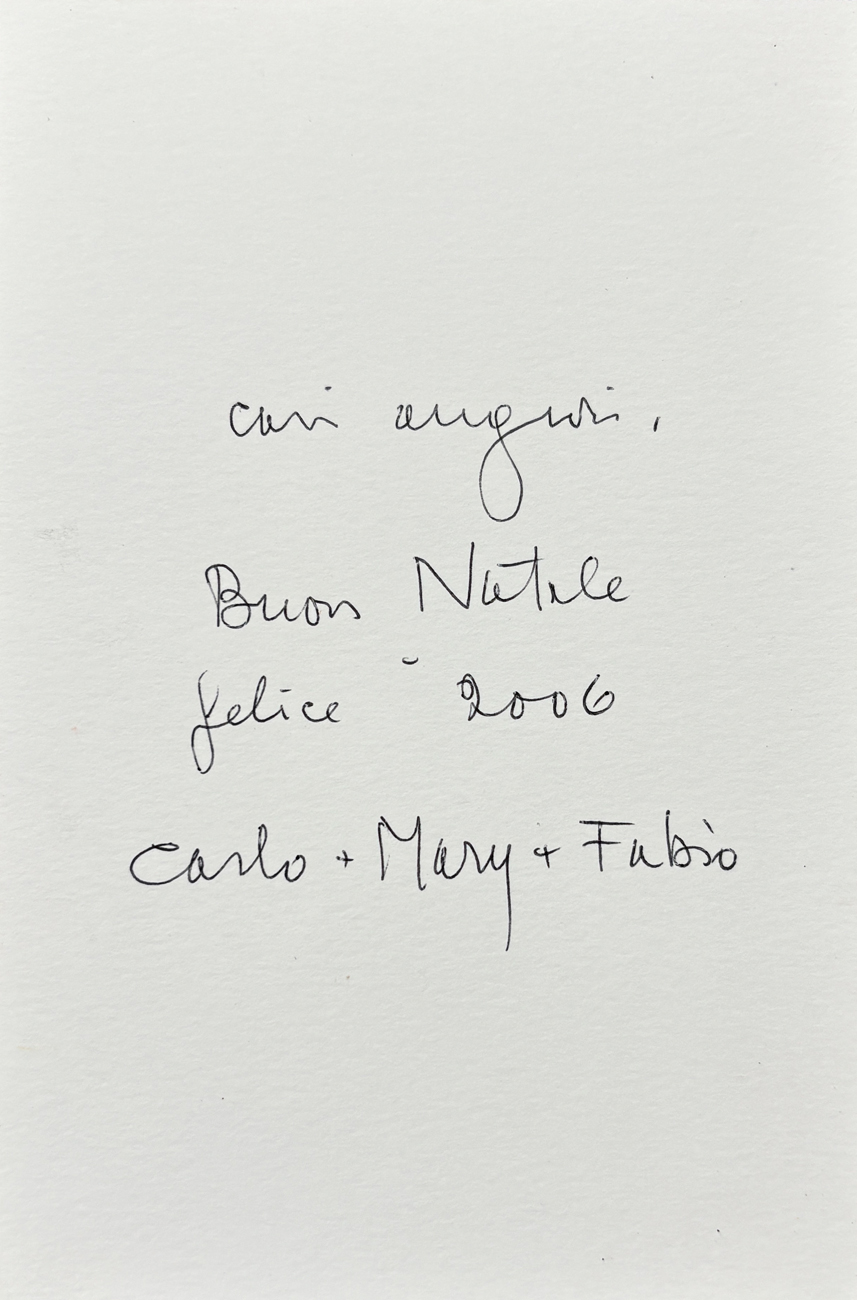 cari auguri,
Buon Natale
felice 2006
Carlo + Mary + Fabio